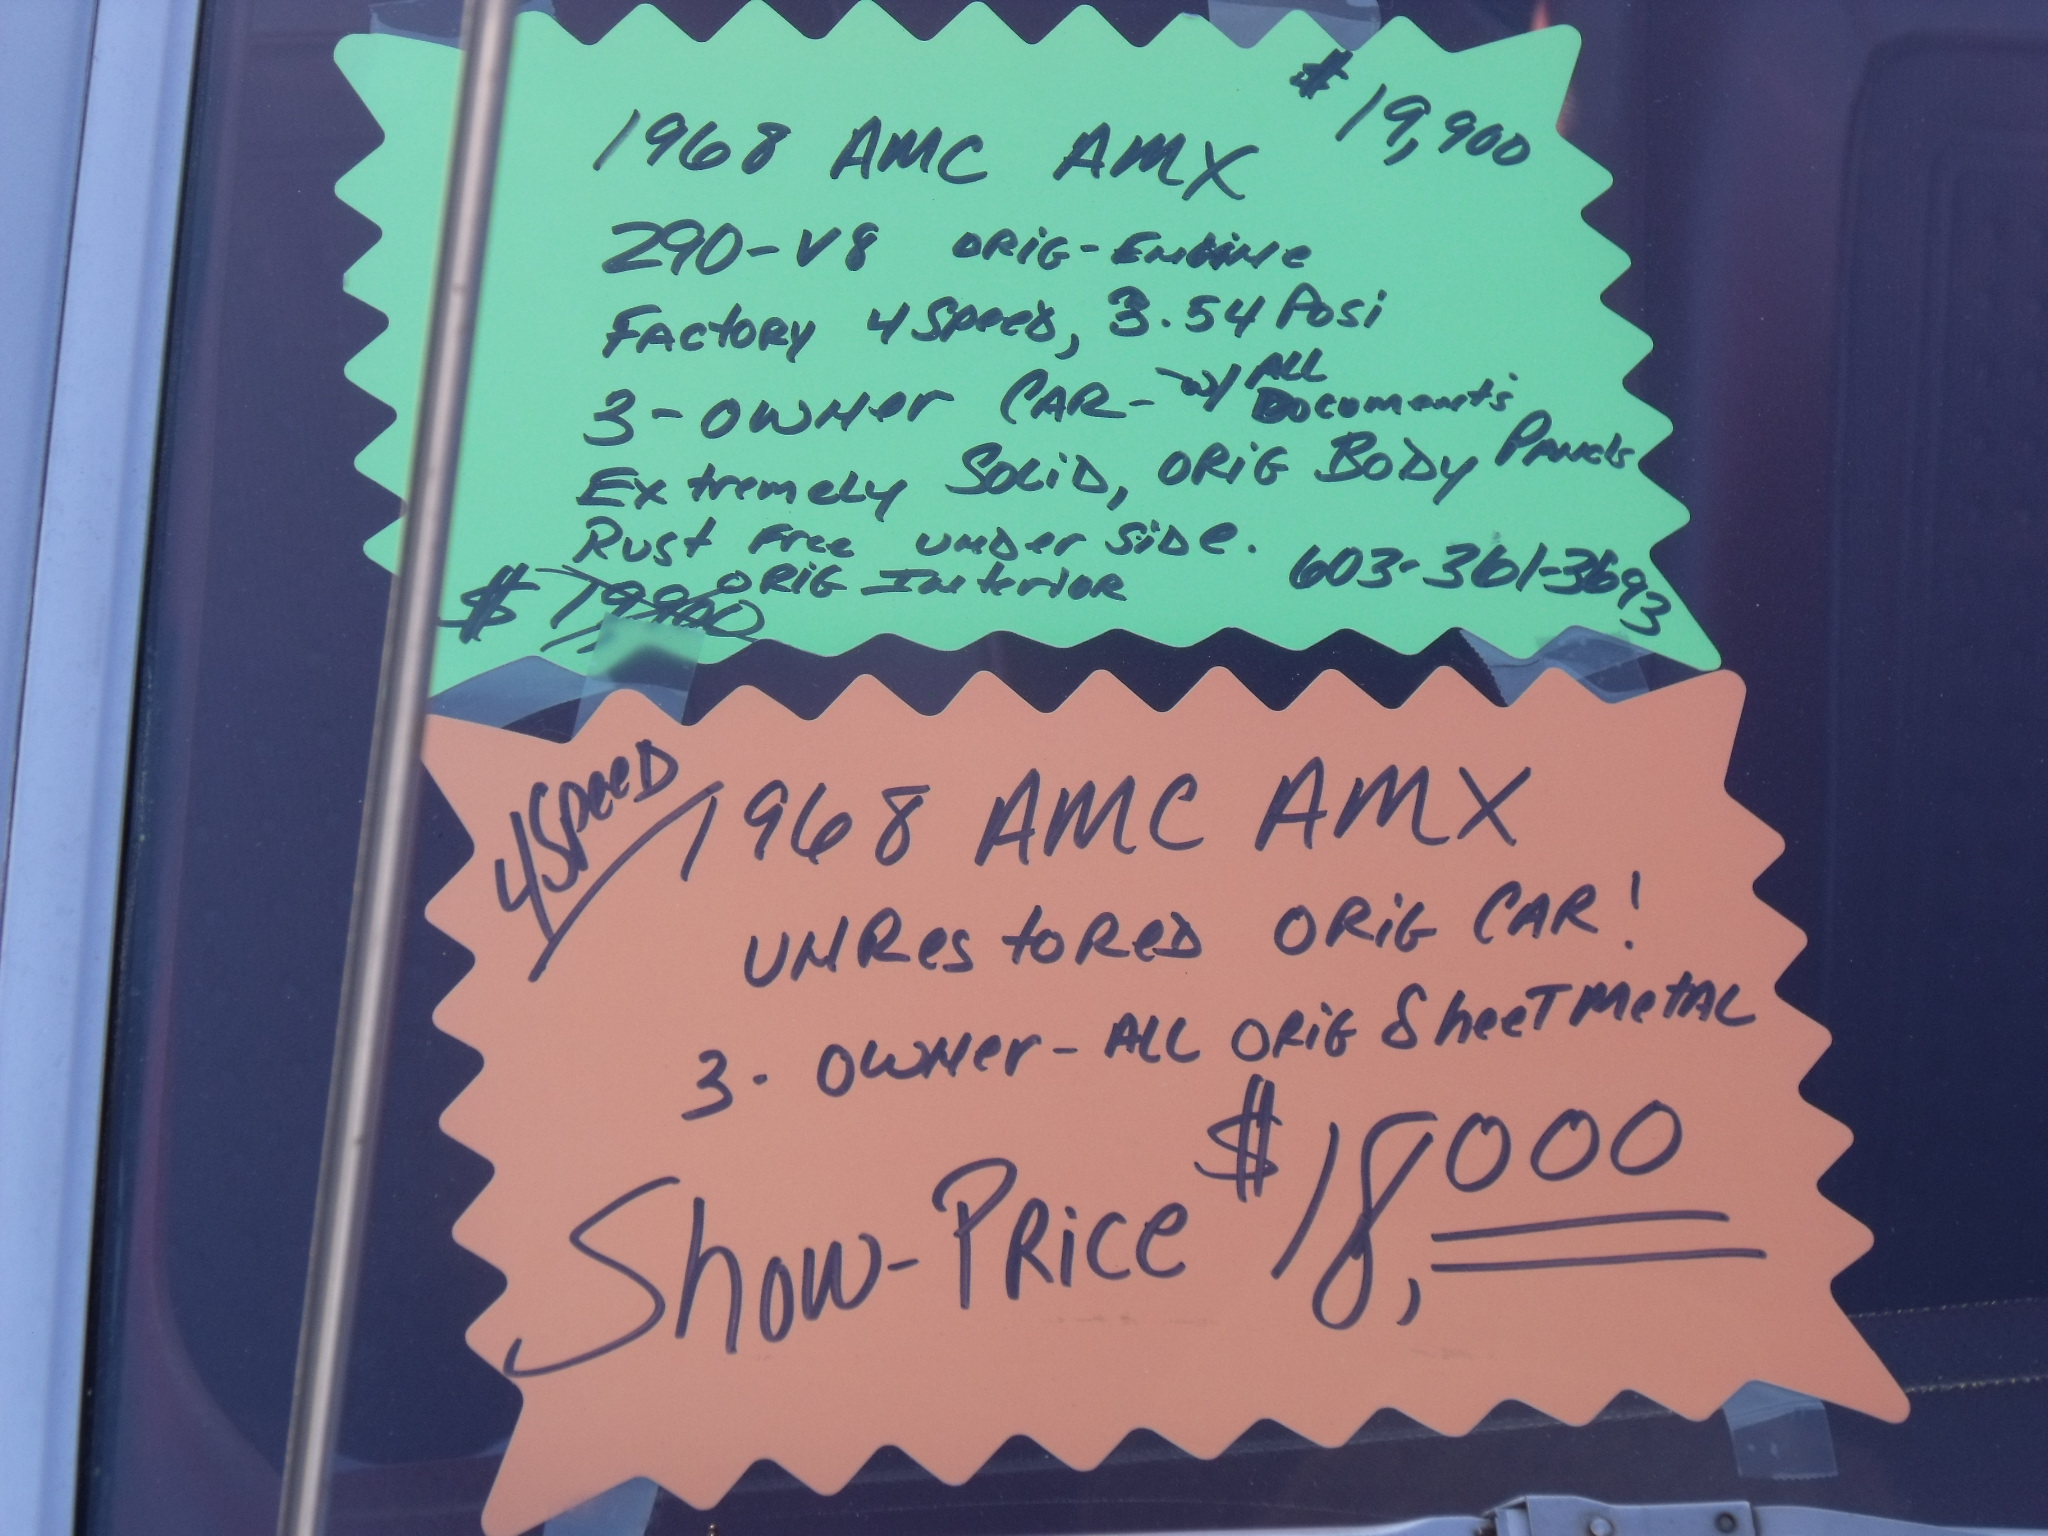 $19,900
1968 AMC AMX
290-V8 ORIG-ENGINE
FACTORY 4 SPEED, 3.54 POSI
3-OWNER CAR- W/ ALL DOCUMENTS
EXTREMELY SOLID, ORIG BODY PANELS
RUST FREE UNDER SIDE.
ORIG INTERIOR
603-361-3693
$19,900
4 SPEED
1968 AMC AMX
UNRESTORED ORIG CAR!
3-OWNER-ALL ORIG SHEET METAL
Show-Price $18,000